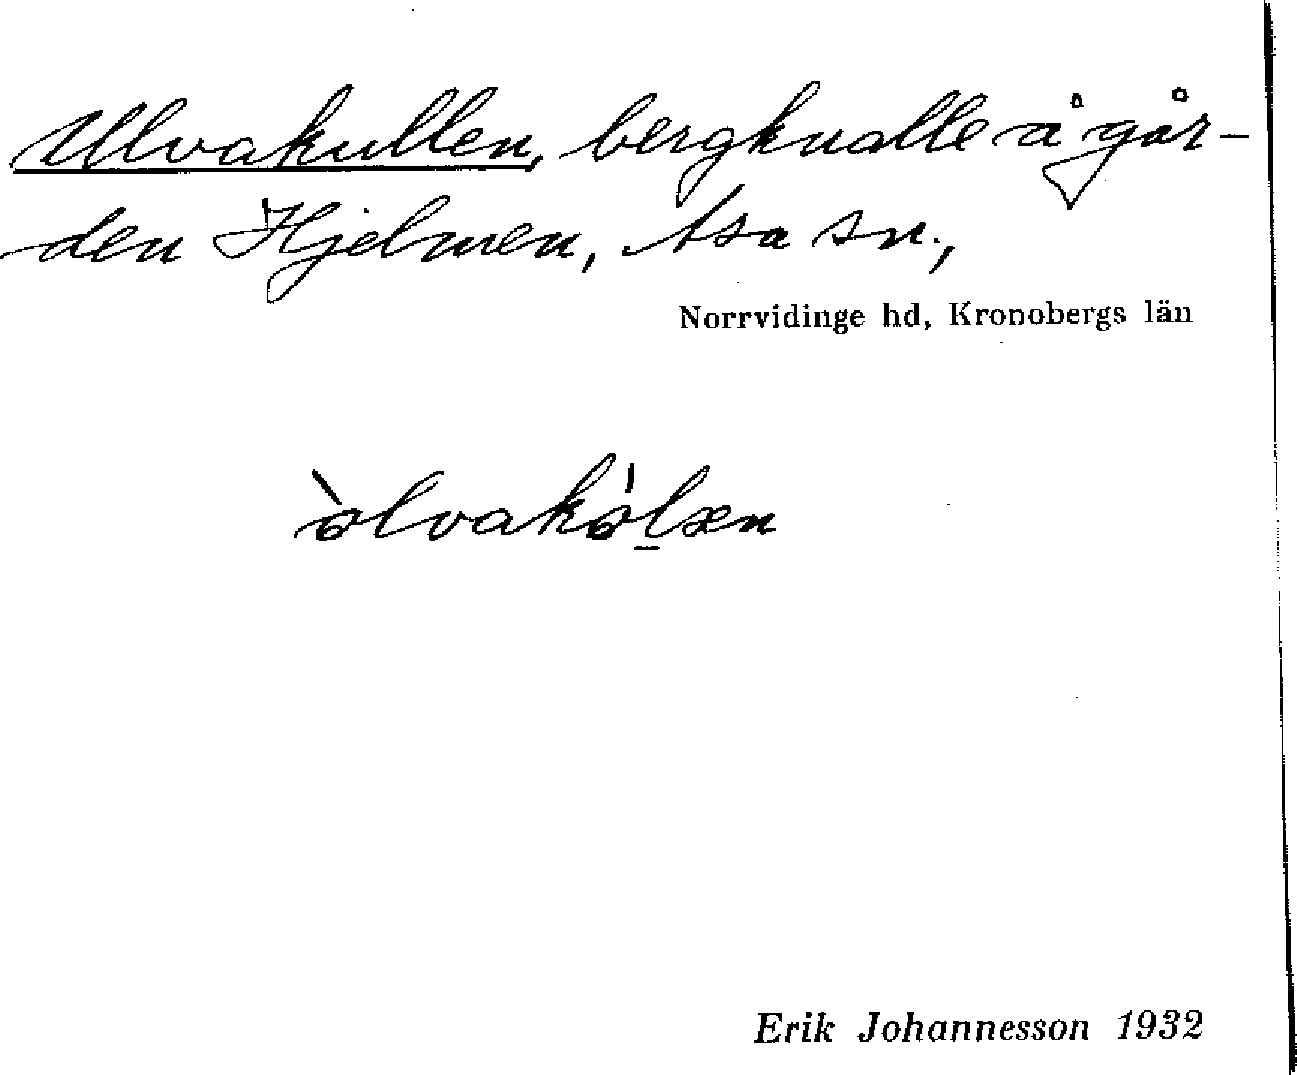 Ulvakullen, bergknalle å går-
den Hjelmen, Asa sn.,
Norrvidinge hd, Kronobergs län
Erik Johannesson 1932